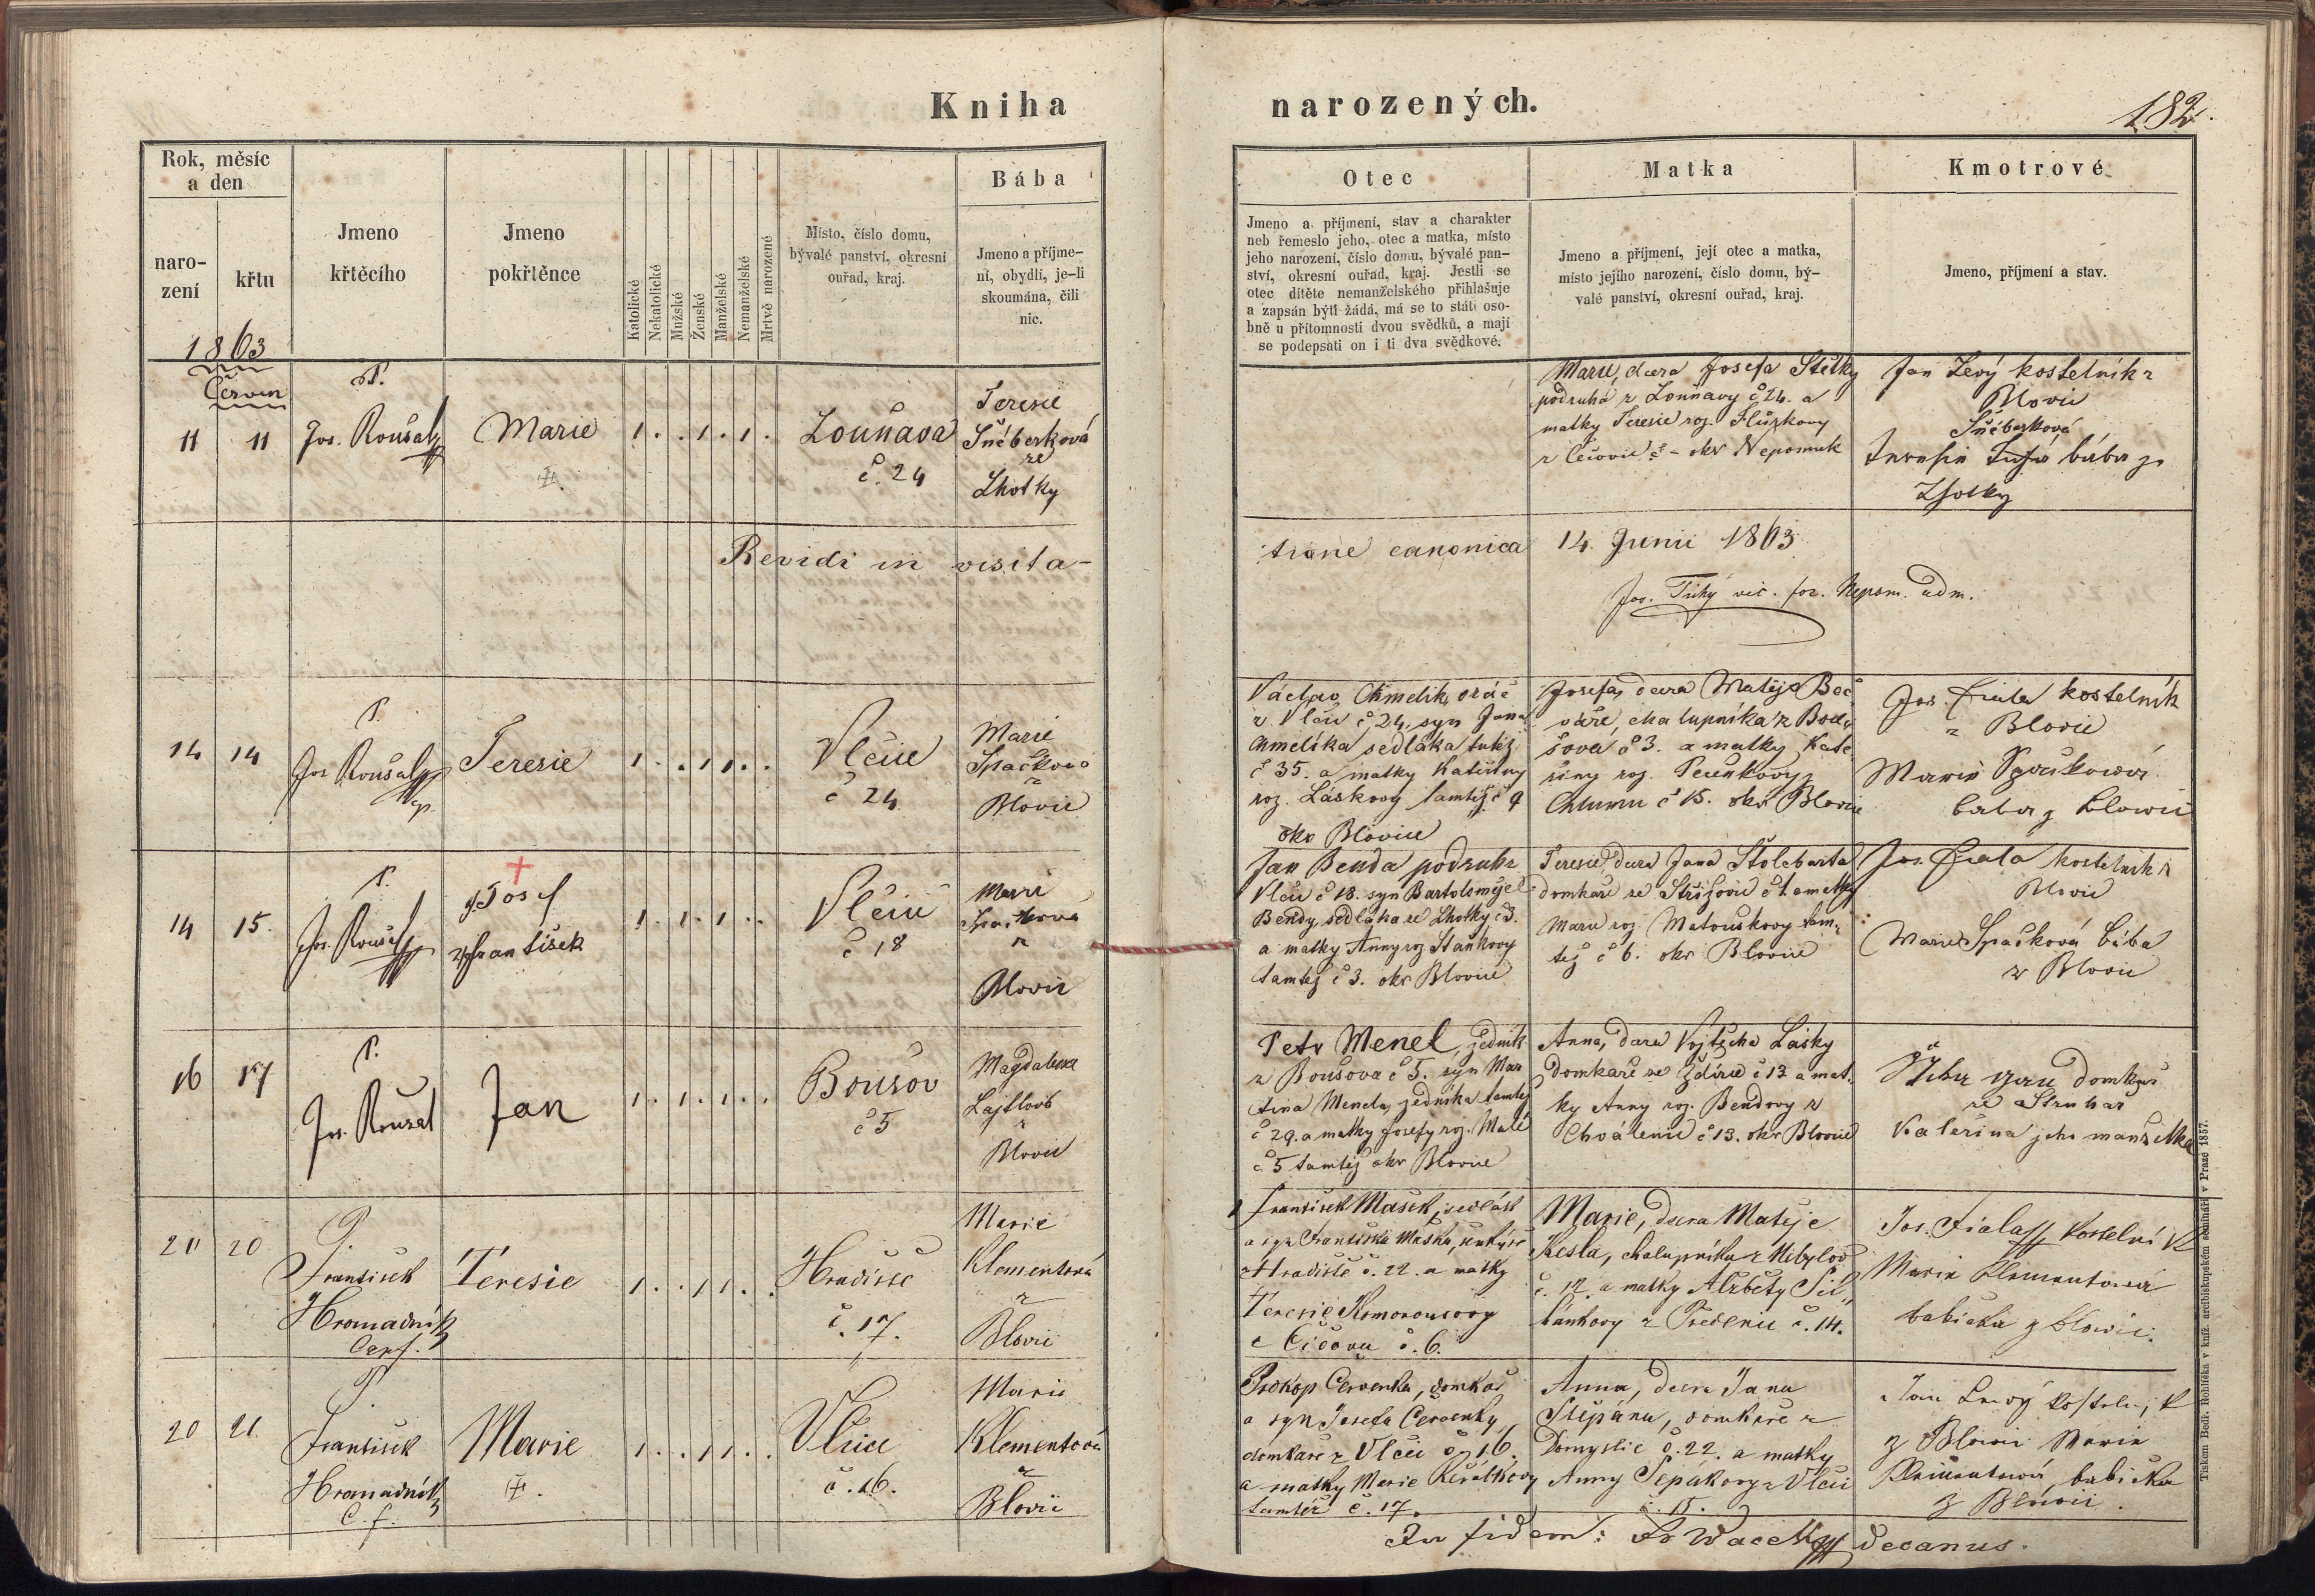 Kniha
narozených.
182.
Rok, měsíc
a den
naro-
zení
křtu
1863
Červen
Jmeno
křtěcího
Jmeno
pokřtěnce
Katolické
Nekatolické
Mužské
Ženské
Manželské
Nemanželské
Mrtvě narozené
Místo, číslo domu,
bývalé panství, okresní
ouřad, kraj.
Bába
Jmeno a příjme-
ní, obydlí, je-li
skoumána, čili
nic.
Otec
Jmeno a příjmení, stav a charakter
neb řemeslo jeho, otec a matka, místo
jeho narození, číslo domu, bývalé pan-
ství, okresní ouřad, kraj. Jestli se
otec dítěte nemanželského přihlašuje
a zapsán býti žádá, má se to státi oso-
bně u přítomnosti dvou svědků, a mají
se podepsati on i ti dva svědkové.
Matka
Jmeno a příjmení, její otec a matka,
místo jejího narození, číslo domu, bý-
valé panství, okresní ouřad, kraj.
Kmotrové
Jmeno, příjmení a stav.
11 11
P.
Jos. Roušal
Marie
1 . . 1 . 1 .
Louňava
č. 24
Teresie
ze
Lhotky
Marie, dcera Josefa
podruha z Louňavy č 24. a
matky Teresie roz.
okr Nepomuk
Jan Levý kostelník z
Blovic
bába ze
Lhotky
Revidi in visita-
tione canonica 14. Junii 1863
Jos. Tichý vic. for. Nepom. adm.
14 14
P.
Jos Roušal
cp.
Teresie
1 . . 1 1 . .
Vlčic
č 24
Marie
Spačkova
z
Blovic
Václav Chmelík, oráč
z Vlčic č 24. syn Jana
Chmelíka sedláka tutéž
č 35. a matky Kateřiny
roz. Láskovy tamtéž č 9
okr Blovice
Josefa, dcera Matěje Boč
váře, chalupníka z Bou
šova č 3. a matky Kate
řiny roz. z
Chlumu č 15. okr Blovice
Jos. Fiala kostelník
z Blovic
Marie Spačkowá
baba z Blowic
14 15.
P.
Jos. Roušal
Josef
František
1 . 1 . 1 . .
Vlčic
č 18
Marie
Spačkova
z
Blovic
Jan Benda podruh z
Vlčic č 18. syn Bartoloměje
Bendy, sedláka ze Lhotky č 3.
a matky Anny roz Staňkovy
tamtéž č 3. okr Blovice
Teresie, dcera Jana
domkáře ze Střížovic č 1. a matky
Marie roz. Matouškovy tam-
též č 6. okr Blovice
Jos. Fiala kostelník z
Blovic
Marie Spačková bába
z Blovic
16 17
P.
Jos. Roušal
Jan
1 . 1 . 1 . .
Boušov
č 5
Magdalena
z
Blovic
Petr Menel, zedník
z Boušova č 5. syn Mar
tina Menela, zedníka tamtéž
č 29. a matky Josefy roz. Malé
č 5 tamtéž okr Blovice
Anna, dcera Vojtěcha Lásky
domkaře ze Ždírce č 13 a mat-
ky Anny roz. Bendovy z
Chválenic č 13. okr Blovice
domkař
ze Struhař
Kateřina jeho manželka
20 20
P.
František
Hromadník
Teresie
1 . . 1 1 . .
Hradiště
č. 17.
Marie
Klementová
z
Blovic
František Mašek, sedlák
a syn Františka Maška,
z Hradiště č. 22. a matky
Teresie
z Čičova č. 6.
Marie, dcera Matěje
Kesla, chalupníka z Nebylov
č. 12. a matky Alžběty
z Předenic č. 14.
Jos. Fiala kostelník
Marie Klementowá
babička z Blowic.
20 21.
P.
František
Hromadník
C. f.
Marie
1 . . 1 1 . .
Vlčice
č. 16.
Marie
Klementová
z
Blovic
Prokop Červenka, domkař
a syn Josefa Červenky,
domkaře z Vlčic č. 16.
a matky Marie
tamtéž č. 17.
Anna, dcera Jana
Štěpána, domkaře z
Domyslic č. 22. a matky
Anny z Vlčic
č. 15.
Jan Lewý kostelník
z Blowic Marie
Klementowá, babička
z Blowic.
In fidem: decanus.
Tiskem Bedř. Rohlíčka v kníž. arcibiskupském semináři v Praze 1857.